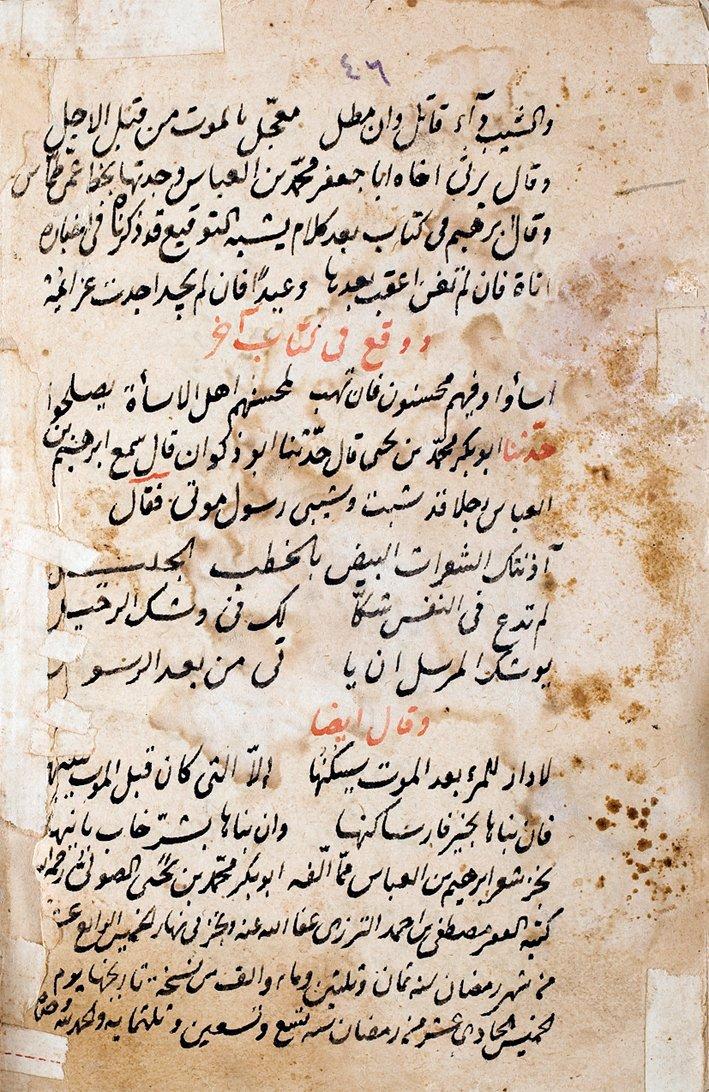 ٤٦
والشيب دآء قاتل وان مطل معجّل بالموت من قبل الاجل
وقال يرثى اخاه ابا جعفر محمّد بن العباس وجدتها بخط
وقال ابرهيم فى كتاب بعد كلام يشبه التوقيع قد ذكرناه فى اخباره
اناة فان لم تغن اعقب بعدها وعيدًا فان لم يجد اجدت عزائمه
ووقع فى كتاب آخر
اساؤا وفيهم محسنون فان تهب لمحسنهم اهل الاسأة يصلحوا
حدّثنا ابو بكر محمّد بن يحيى قال حدّثنا ابو ذكوان قال سمع ابرهيم بن
العباس رجلا قد شبت وشيبى رسول موتى فقال
آذنتك الشعرات البيض بالخطب الجليل
لم تدع فى النفس شكّا لك فى وشك الرحيل
يوشك المرسل ان يا تى من بعد الرسول
وقال ايضا
لا دار للمرء بعد الموت يسكنها الّا التى كان قبل الموت يبنيها
فان بناها بخير فاز ساكنها وان بناها بشرّ خاب بانيها
نجز شعر ابرهيم بن العباس ممّا الّفه ابو بكر محمّد بن يحيى الصولى رحمه الله
كتبه الفقير مصطفى بن احمد الترزى عفا الله عنه ونجز فى نهار الخميس الرابع عشر
من شهر رمضان سنه ثمان وثلثين وماء والف من نسخة تاريخها يوم
الخميس الحادى عشر من رمضان سنه تسع وتسعين وثلثمايه والحمد لله وحده